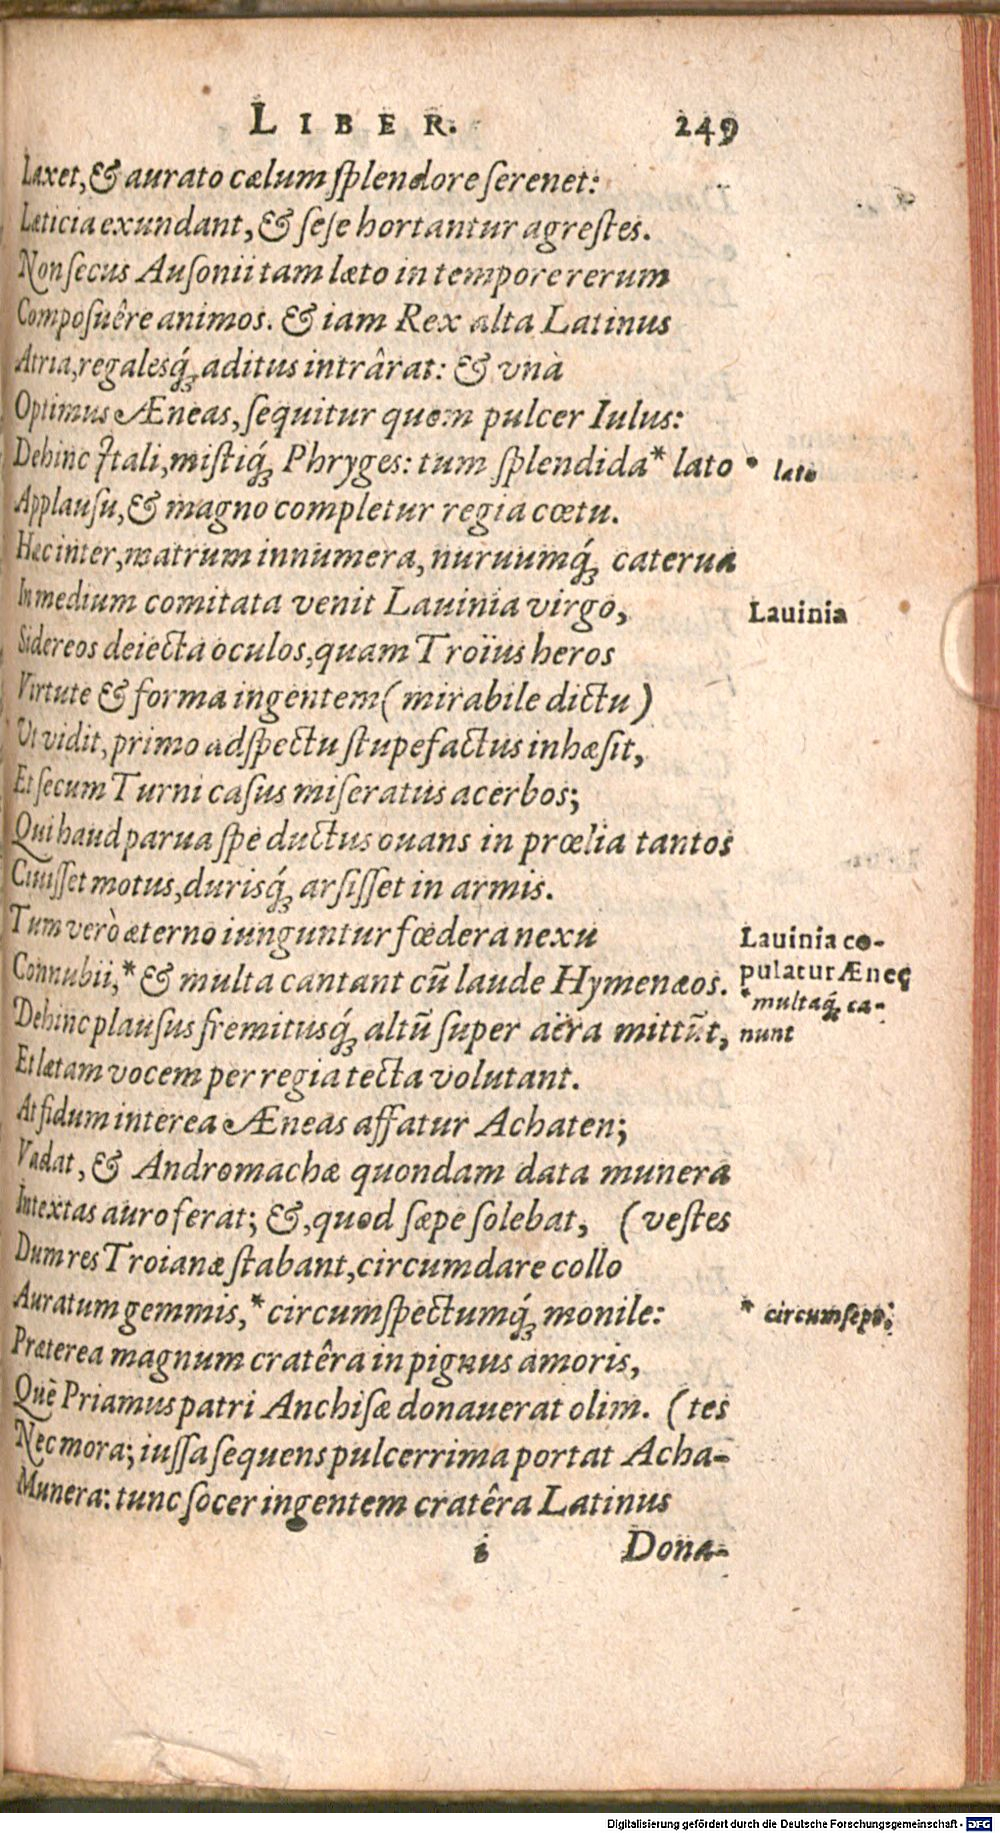 LIBER. 249
Laxet, & aurato cælum ſplendore ſerenet:
Læticia exundant, & ſeſe hortantur agreſtes.
Non ſecus Auſonii tam læto in tempore rerum
Compoſuêre animos. & iam Rex alta Latinus
Atria, regalesq́; aditus intrârat: & vnà
Optimus Æneas, ſequitur quem pulcer Iulus:
Dehinc Itali, miſtiq́; Phryges: tum ſplendida* lato
* lato
Applauſu, & magno completur regia cœtu.
Hæc inter, matrum innumera, nuruumq́; caterua
In medium comitata venit Lauinia virgo,
Lauinia
Sidereos deiecta oculos, quam Troïus heros
Virtute & forma ingentem (mirabile dictu)
Ut vidit, primo adſpectu ſtupefactus inhæſit,
Et ſecum Turni caſus miſeratus acerbos;
Qui haud parua ſpe ductus ouans in prœlia tantos
Ciuiſſet motus, durisq́; arſiſſet in armis.
Tum verò æterno iunguntur fœdera nexu
Lauinia co-
Connubii,* & multa cantant cũ laude Hymenæos.
pulatur Æneę
*multaq́; ca-
Dehinc plauſus fremitusq́; altũ ſuper aëra mittũt,
nunt
Et lætam vocem per regia tecta volutant.
At fidum interea Æneas affatur Achaten;
Vadat, & Andromachæ quondam data munera
Intextas auro ferat; &, quod ſæpe ſolebat, (veſtes
Dum res Troianæ ſtabant, circumdare collo
Auratum gemmis,* circumſpectumq́; monile:
* circumſepto;
Præterea magnum cratêra in pignus amoris,
Quẽ Priamus patri Anchiſæ donauerat olim. (tes
Nec mora; iuſſa ſequens pulcerrima portat Acha-
Munera: tunc ſocer ingentem cratêra Latinus
i Dona-
Digitalisierung gefördert durch die Deutsche Forschungsgemeinschaft - DFG